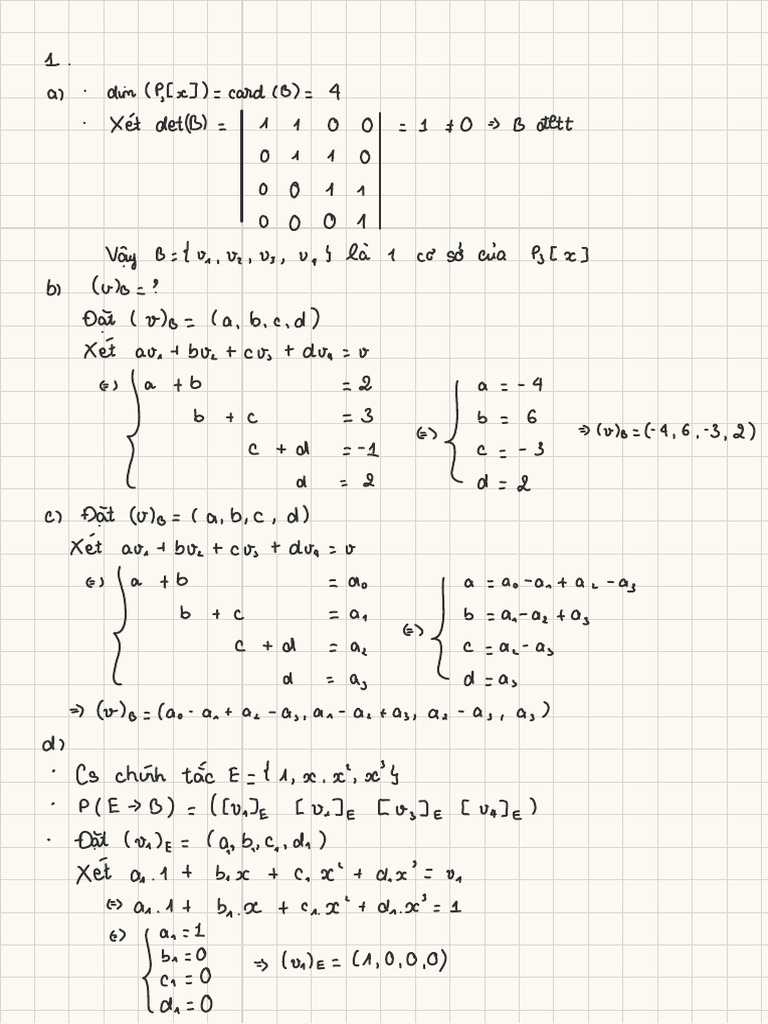 1.
a) · dim (P₃[x]) = card (B) = 4
· Xét det(B) = | 1 1 0 0 | = 1 ≠ 0 ⇒ B đltt
0 1 1 0
0 0 1 1
0 0 0 1
Vậy B = { v₁, v₂, v₃, v₄ } là 1 cơ sở của P₃[x]
b) (v)_B = ?
Đặt (v)_B = (a, b, c, d)
Xét av₁ + bv₂ + cv₃ + dv₄ = v
⇔ { a + b = 2 ⇔ { a = -4
b + c = 3 b = 6 ⇒ (v)_B = (-4, 6, -3, 2)
c + d = -1 c = -3
d = 2 d = 2
c) Đặt (v)_B = (a, b, c, d)
Xét av₁ + bv₂ + cv₃ + dv₄ = v
⇔ { a + b = a₀ ⇔ { a = a₀ - a₁ + a₂ - a₃
b + c = a₁ b = a₁ - a₂ + a₃
c + d = a₂ c = a₂ - a₃
d = a₃ d = a₃
⇒ (v)_B = (a₀ - a₁ + a₂ - a₃, a₁ - a₂ + a₃, a₂ - a₃, a₃)
d)
· Cs chính tắc E = { 1, x, x², x³ }
· P(E → B) = ([v₁]_E [v₂]_E [v₃]_E [v₄]_E)
· Đặt (v₁)_E = (a₁, b₁, c₁, d₁)
Xét a₁.1 + b₁x + c₁x² + d₁x³ = v₁
⇔ a₁.1 + b₁.x + c₁.x² + d₁.x³ = 1
⇔ { a₁ = 1
b₁ = 0 ⇒ (v₁)_E = (1, 0, 0, 0)
c₁ = 0
d₁ = 0